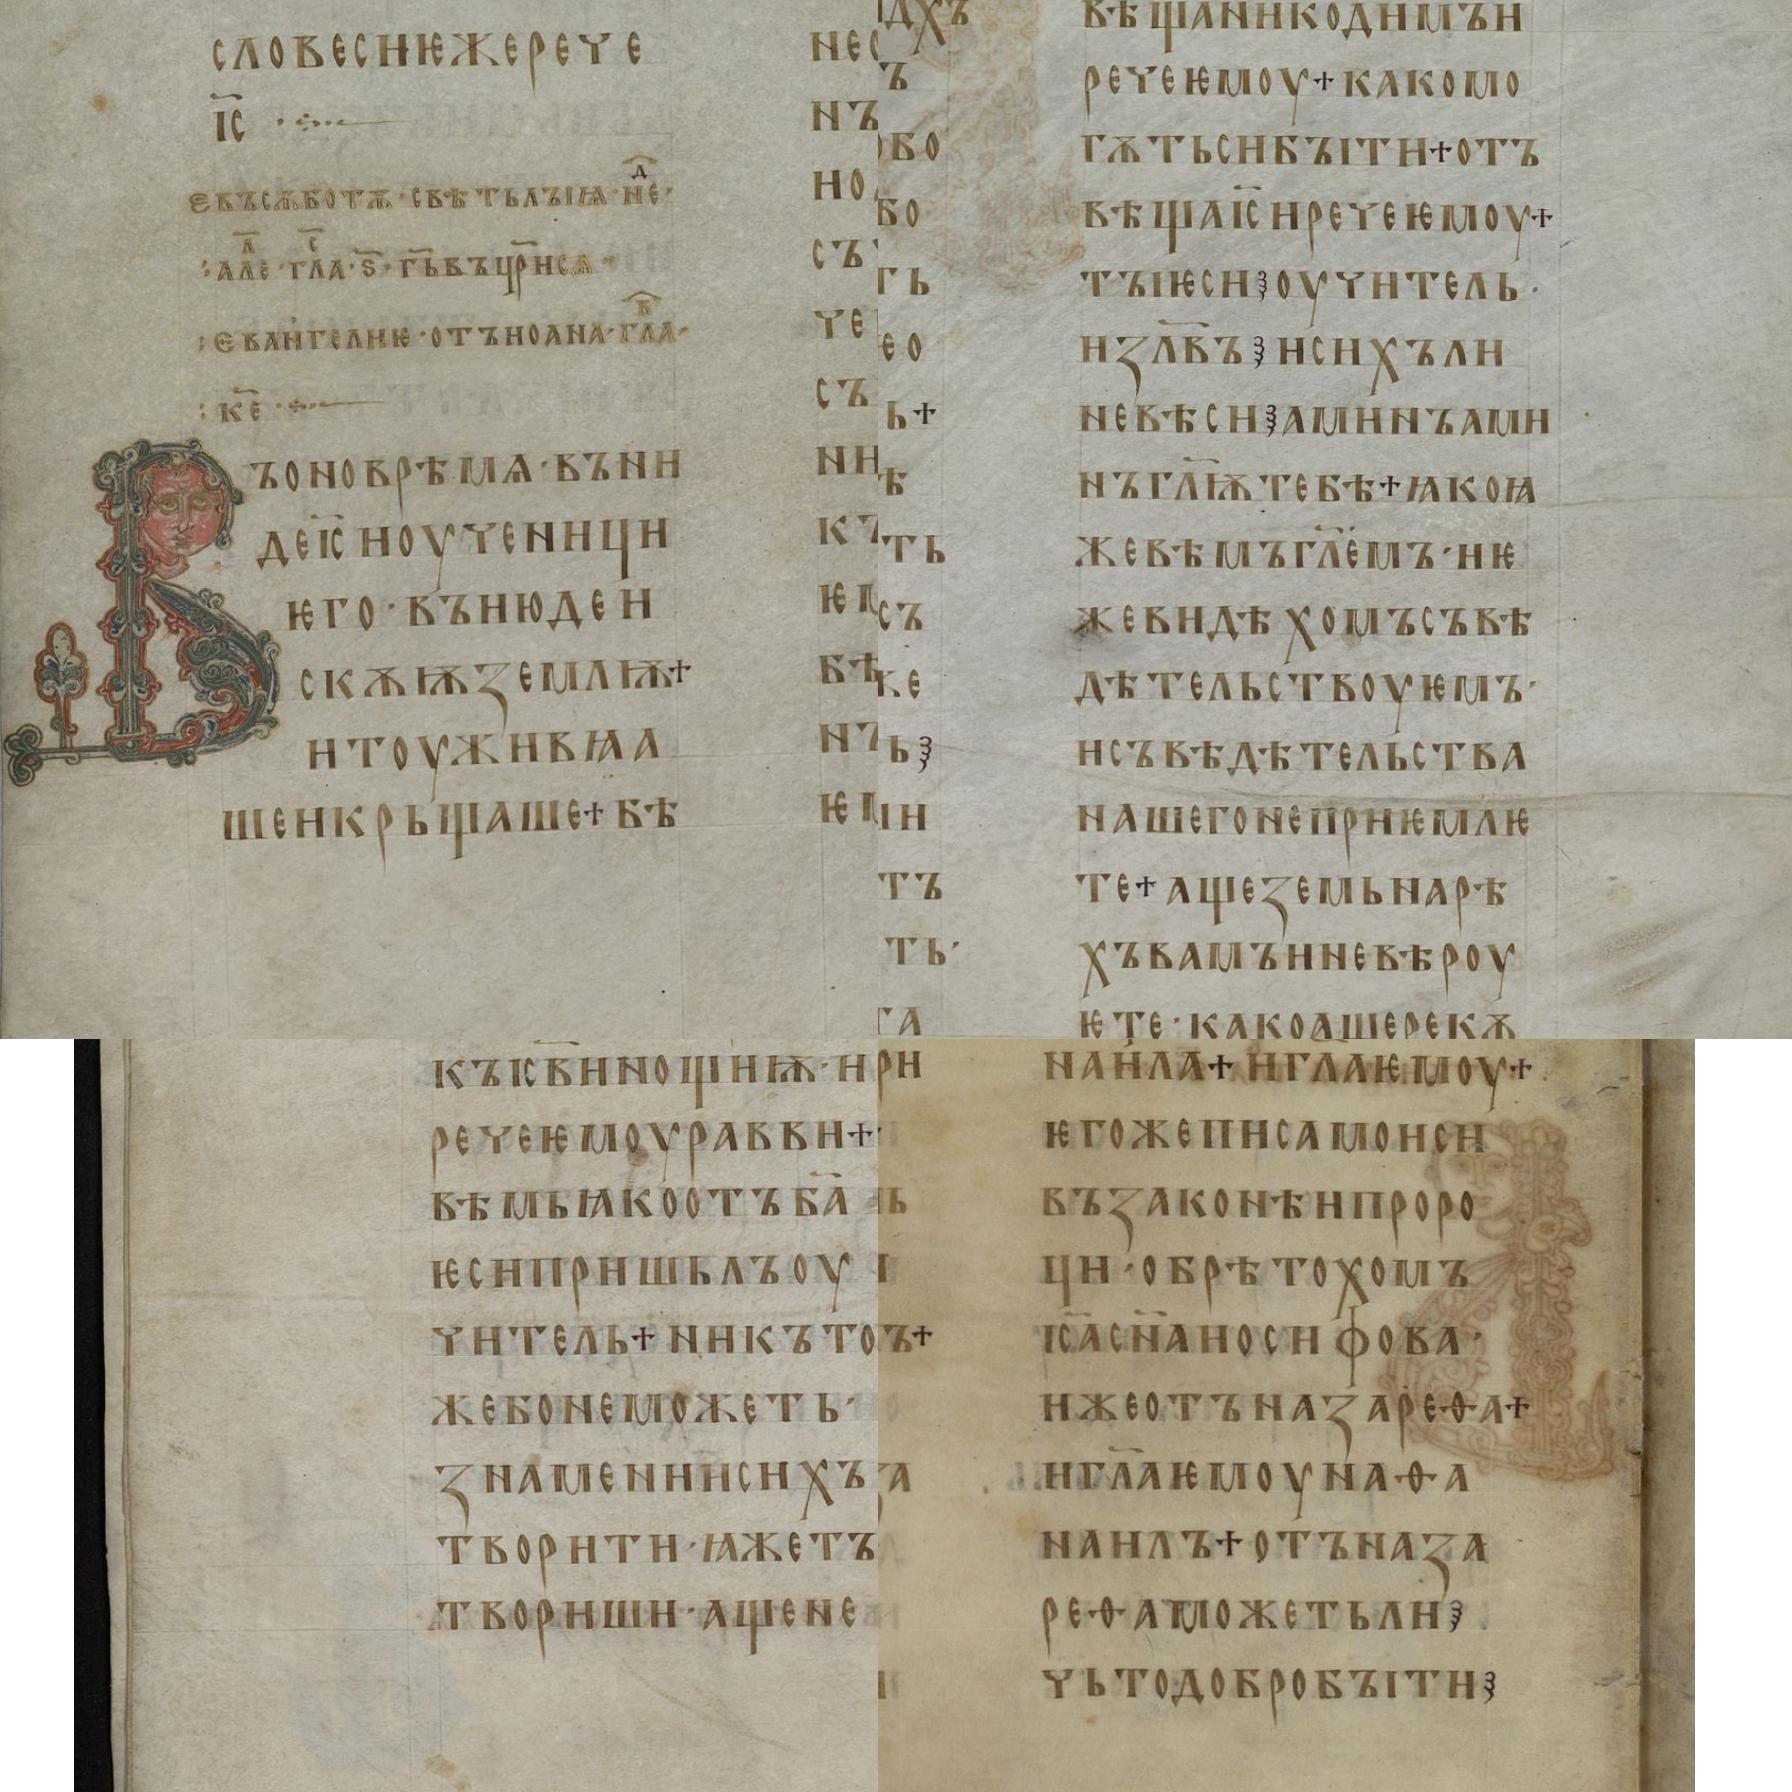 словесиѥжерече
і҃с
євъсѫботѫ·свѣтьлъіꙗ·не҃д·
:але҃л·гла҃с·ѕ҃·гь҃въцр҃исѧ·
:єванг҃елиѥ·отъиоана·гла҃в·
:ке҃·
Въоноврѣмѧ·въни
деіс҃иоученици
ѥго·въиюдеи
скѫѭземлѭ+
итоуживꙗа
шеикрьщаше+бѣ
вѣщаникодимъи
речеѥмоу+какомо
гѫтьсибъіти+отъ
вѣщаіс҃иречеѥмоу+
тъіѥсиꙁоучитель·
изл҃въꙁисихъли
невѣсиꙁаминъами
нъгл҃ѭтебѣ+ꙗкоꙗ
жевѣмъгл҃емъ·иѥ
жевидѣхомъсъвѣ
дѣтельствоуѥмъ·
исъвѣдѣтельства
нашегонеприѥмлѥ
те+ащеземьнарѣ
хъвамъиневѣроу
ѥте·какоащерекѫ
къіс҃винощиѭ·и
речеѥмоураввии+
вѣмьꙗкоотъба҃
ѥсипришьлъоу
читель+никъто
жебонеможеть·
знамениисихъ
творити·ꙗжетъ
твориши·ащене
наилаі+игл҃аѥмоу+
ѥгожеписамоиси
възаконѣипроро
ци·обрѣтохомъ
іс҃асн҃аиосифова·
ижеотъназареѳа+
игл҃аѥмоунаѳа
наилъ+отъназа
реѳаможетьлиꙁ
чьтодобробъітиꙁ